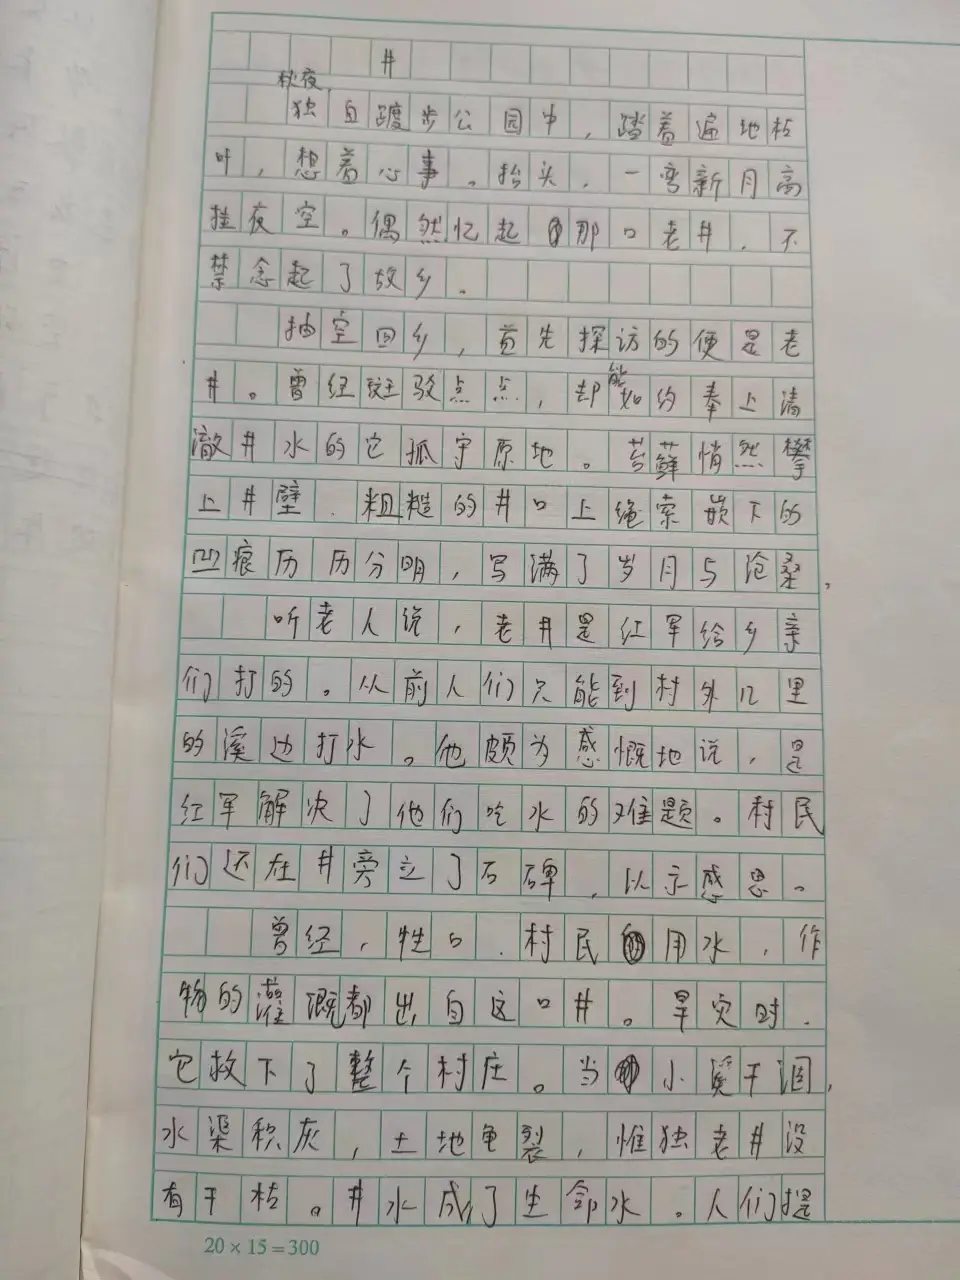 井
秋夜,
独自踱步公园中，踏着遍地枯
叶，想着心事。抬头，一弯新月高
挂夜空。偶然忆起那口老井，不
禁念起了故乡。
抽空回乡，首先探访的便是老
井。曾经斑驳点点，却能如约奉上清
澈井水的它孤守原地。苔藓悄然攀
上井壁．粗糙的井口上绳索嵌下的
凹痕历历分明，写满了岁月与沧桑。
听老人说，老井是红军给乡亲
们打的。从前人们只能到村外几里
的溪边打水。他颇为感慨地说，是
红军解决了他们吃水的难题。村民
们还在井旁立了石碑，以示感恩。
曾经，牲口．村民用水，作
物的灌溉都出自这口井。旱灾时．
它救下了整个村庄。当小溪干涸，
水渠积灰，土地龟裂，惟独老井没
有干枯。井水成了生命水。人们提
20×15=300